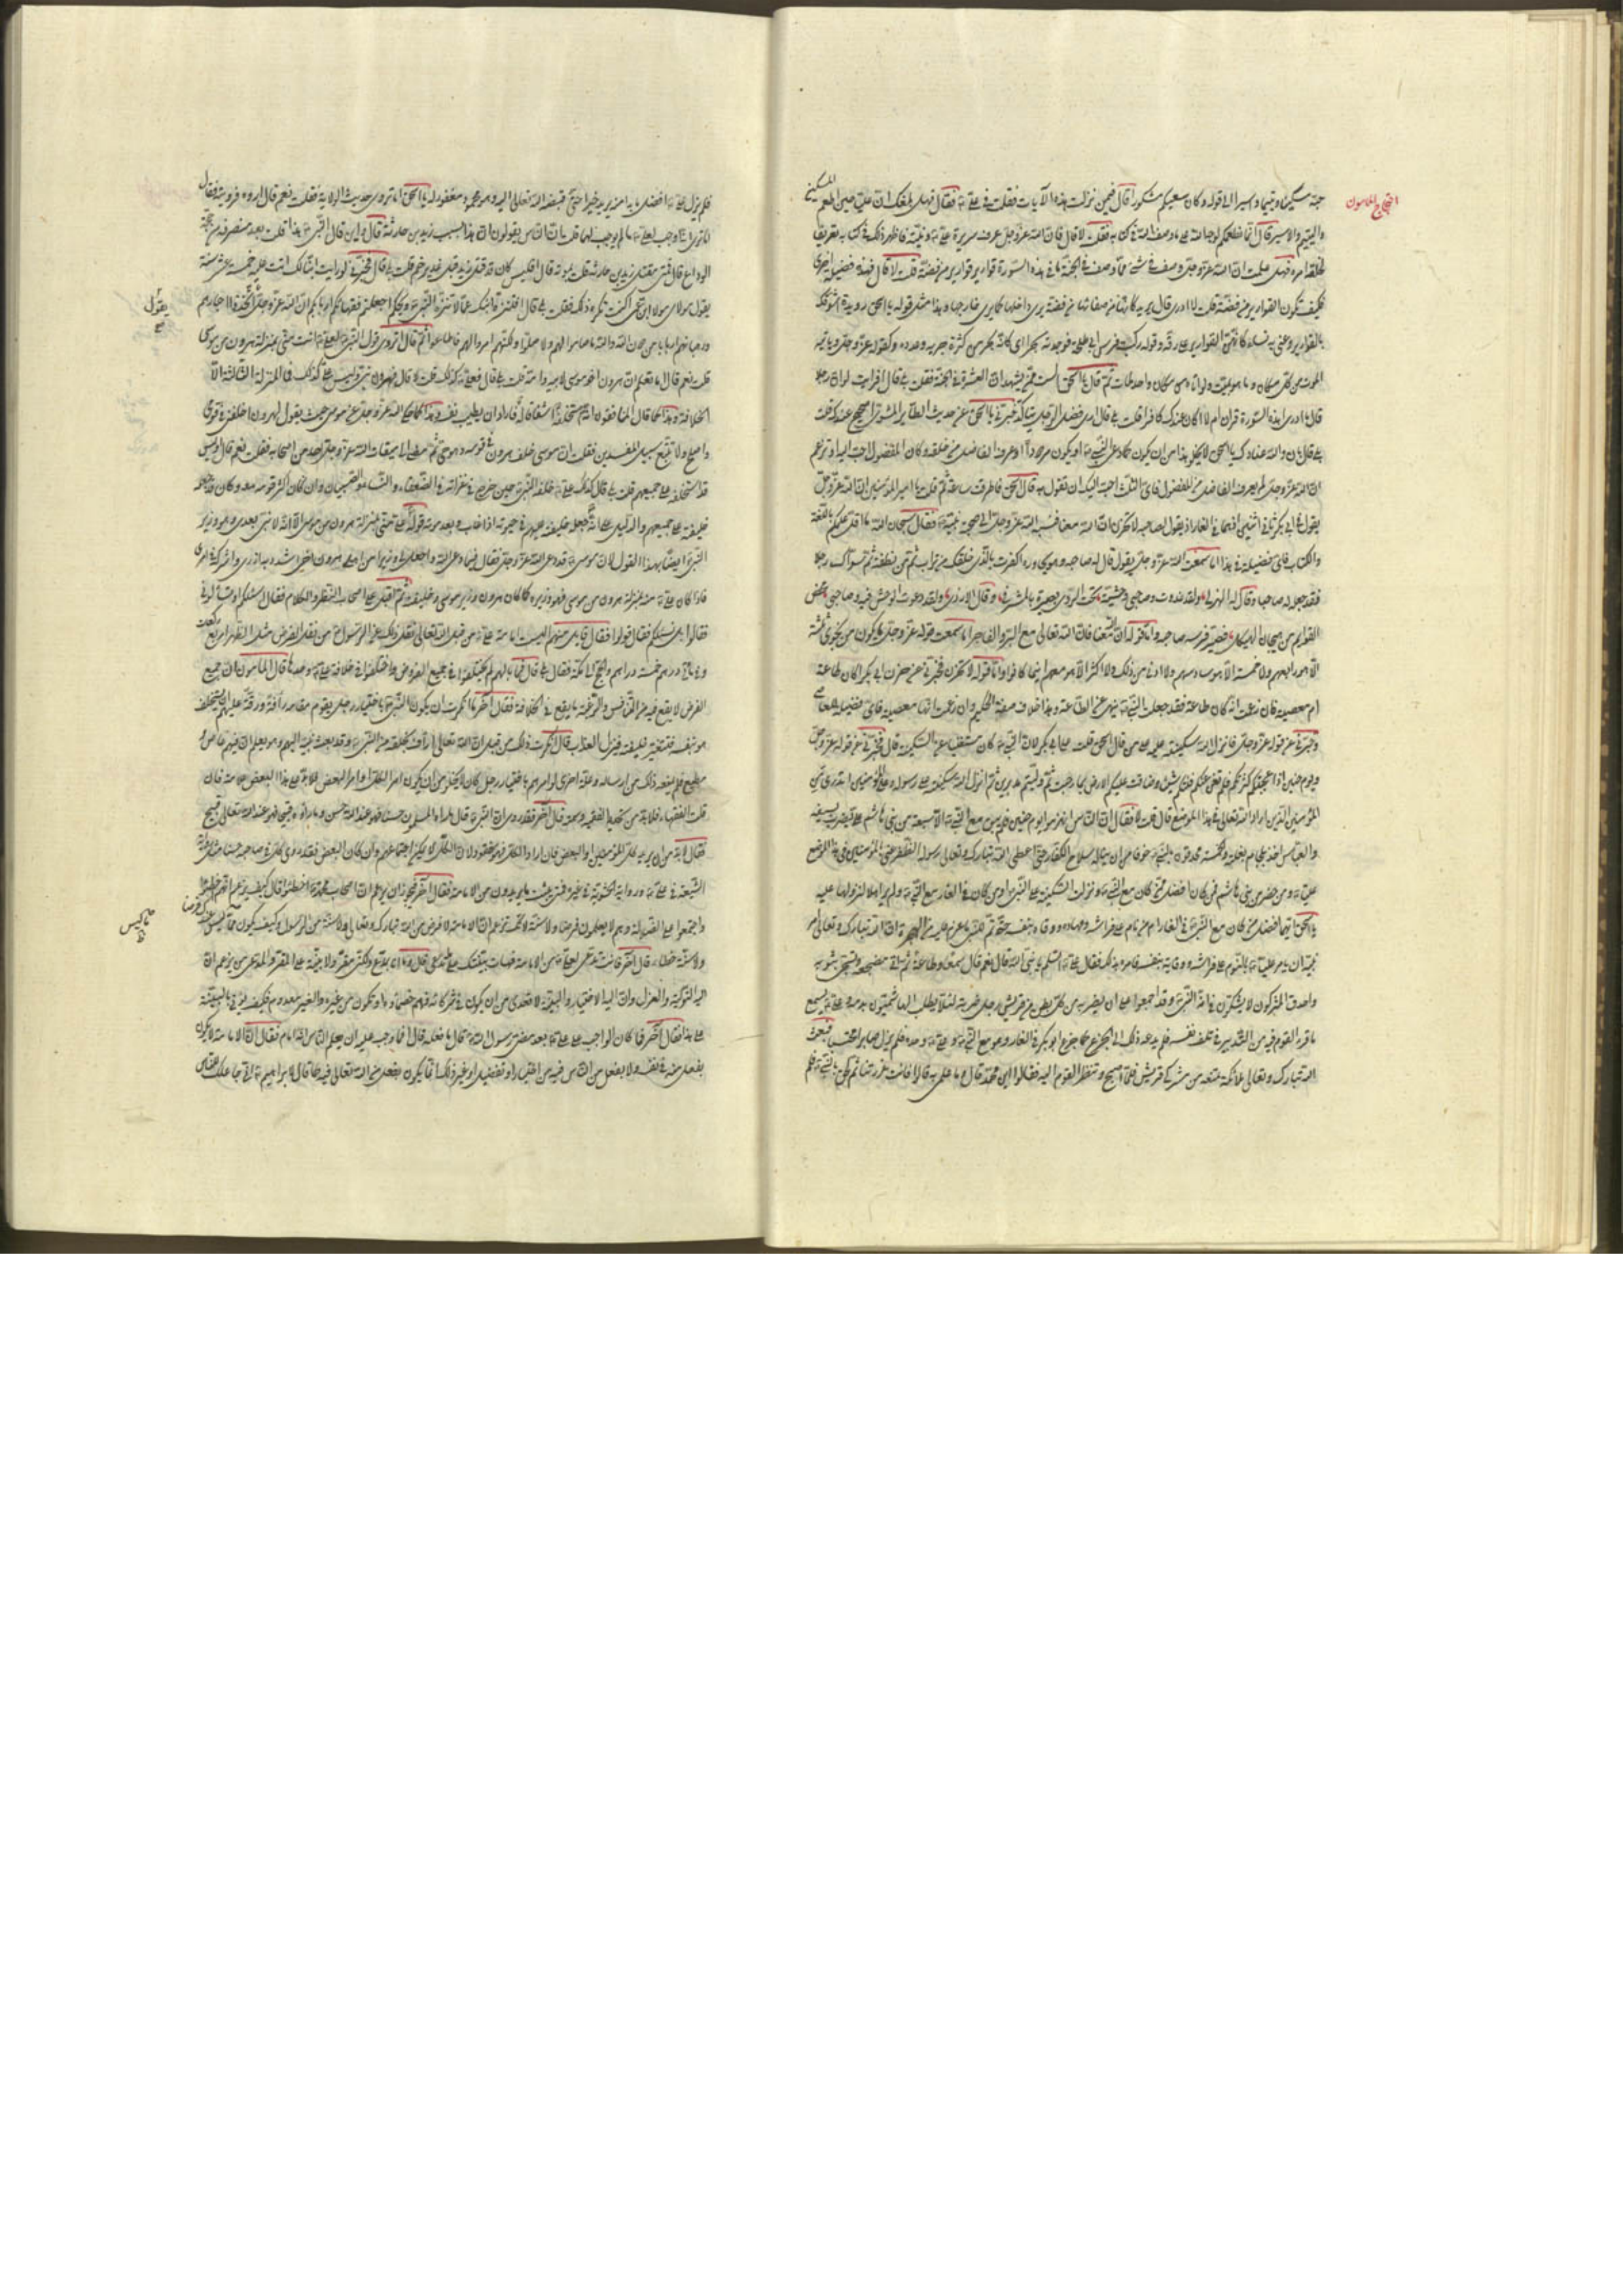 احتجاج المامون
حبه مسكينا ويتيما واسيرا الى قوله وكان سعيكم مشكورا قال فيمن نزلت هذه الآيات فقلت في علي ع فقال فهل بلغك ان عليا حين اطعم المسكين
واليتيم والاسير قال انما نطعمكم لوجه الله على ما وصف الله في كتابه فقلت لا قال فان الله عز وجل عرف سريرة علي ع ونيته فاظهر ذلك في كتابه تعريفا
لخلقه امره فهل علمت ان الله عز وجل وصف في شيء مما وصف في الجنة ما في هذه السورة قوارير قوارير من فضة قلت لا قال فهذه فضيلة اخرى
فكيف تكون القوارير من فضة قلت لا ادري قال يريد كانها من صفائها من فضة يرى داخلها كما يرى خارجها وهذا مثل قوله يا اسحق رويدا شوقك
بالقوارير وعنى به نساء كانهن القوارير رقة وقوله ركبت فرس ابي طلحة فوجدته بحرا اي كانه بحر من كثرة جريه وعدوه وكقوله عز وجل وياتيه
الموت من كل مكان وما هو بميت اي كانه ولو اتاه من مكان واحد مات ثم قال يا اسحق الست ممن يشهد ان العشرة في الجنة فقلت بلى قال افرايت لو ان رجلا
قال ما ادري هذه السورة قران ام لا اكان عندك كافرا قلت بلى قال ارى فضل الرجل يتاكد خبرني يا اسحق عن حديث الطائر المشوي اصحيح عندك قلت
بلى قال بان والله عنادك يا اسحق لا يخلو هذا من ان يكون كما دعا النبي ص او يكون مردودا او عرف الفاضل من خلقه وكان المفضول احب اليه او تزعم
ان الله عز وجل لم يعرف الفاضل من المفضول فاي الثلث احب اليك ان تقول به قال اسحق فاطرقت ساعة ثم قلت يا امير المؤمنين ان الله عز وجل
يقول في ابي بكر ثاني اثنين اذ هما في الغار اذ يقول لصاحبه لا تحزن ان الله معنا فنسبه الله عز وجل الى صحبة نبيه ص فقال سبحان الله ما اقل علمكم باللغة
والكتاب فاي فضيلة في هذا اما سمعت الله عز وجل يقول قال له صاحبه وهو يحاوره اكفرت بالذي خلقك من تراب ثم من نطفة ثم سواك رجلا
فقد جعله له صاحبا وقال الهذلي ولقد غدوت وصاحبي وحشية تحت الردى بصيرة بالمشرف وقال الازدي ولقد دعوت الوحش فيه وصاحبي محض
القوايم من هجان هيكل فصير فرسه صاحبه واما قوله ان الله معنا فان الله تعالى مع البر والفاجر اما سمعت قوله عز وجل ما يكون من نجوى ثلثة
الا هو رابعهم ولا خمسة الا هو سادسهم ولا ادنى من ذلك ولا اكثر الا هو معهم اينما كانوا واما قوله لا تحزن فخبرني عن حزن ابي بكر اكان طاعة
ام معصية فان زعمت انه كان طاعة فقد جعلت النبي ص ينهى عن الطاعة وهذا خلاف صفة الحكيم وان زعمت انها معصية فاي فضيلة للعاصي
وخبرني عن قوله عز وجل فانزل الله سكينته عليه على من قال اسحق قلت على ابي بكر لان النبي ص كان مستغنيا عن السكينة قال فخبرني عن قوله عز وجل
ويوم حنين اذ اعجبتكم كثرتكم فلم تغن عنكم شيئا وضاقت عليكم الارض بما رحبت ثم وليتم مدبرين ثم انزل الله سكينته على رسوله وعلى المؤمنين اتدري من
المؤمنين الذين اراد الله تعالى في هذا الموضع قال قلت لا فقال ان الناس انهزموا يوم حنين فلم يبق مع النبي ص الا سبعة من بني هاشم علي يضرب بسيفه
والعباس اخذ بلجام بغلته والخمسة محدقون بالنبي ص خوفا من ان يناله سلاح الكفار حتى اعطى الله تبارك وتعالى رسوله الظفر عنى بالمؤمنين في هذا الموضع
عليا ع ومن حضر من بني هاشم فمن كان افضل من كان مع النبي ص ونزلت السكينة على النبي ص او من كان في الغار مع النبي ص ولم يره اهلا لنزولها عليه
يا اسحق ايما افضل من كان مع النبي ص في الغار ام من نام على فراشه ومهاده ووقاه بنفسه حتى تم للنبي ص ما عزم عليه من الهجرة ان الله تبارك وتعالى امر
نبيه ان يامر عليا ع بالنوم على فراشه ووقايته بنفسه فامره بذلك فقال علي ع اتسلم يا نبي الله قال نعم قال سمعا وطاعة ثم اتى مضجعه وتسجى بثوبه
واحدق المشركون لا يشكون في انه النبي ص وقد اجمعوا على ان يضربه من كل بطن من قريش رجل ضربة لئلا يطلب الهاشميون بدمه وعلي ع يسمع
ما فيه القوم فيه من التدبير في تلف نفسه فلم يدعه ذلك الى الجزع كما جزع ابو بكر في الغار وهو مع النبي ص وعلي ع وحده فلم يزل صابرا محتسبا فبعث
الله تبارك وتعالى ملائكته تمنعه من مشركي قريش فلما اصبح قام فنظر القوم اليه فقالوا اين محمد قال وما علمي به قالوا فانت غررتنا ثم لحق بالنبي ص فلم
فلم يزل علي ع افضل ما بدا منه يزيد خيرا حتى قبضه الله تعالى اليه وهو محمود مغفور له يا اسحق اما تروي حديث الولاية فقلت نعم قال اروه فرويته فقال
اما ترى انه اوجب لعلي ع ما لم يوجب لهما قلت ان الناس يقولون ان هذا بسبب زيد بن حارثة قال واين قال النبي ص هذا قلت بعد منصرفه من حجة
الوداع قال فمتى قتل زيد بن حارثة قلت بموته قال افليس كان قد قتل زيد قبل غدير خم قلت بلى قال فخبرني لو رايت ابنا لك اتت عليه خمسة عشر سنة
يقول مولاي مولا ابن عمي اكنت تكره ذلك فقلت بلى قال افتنزه ابنك عما لا تنزه النبي ص ويحكم اجعلتم فقهاءكم اربابكم ان الله عز وجل يقول اتخذوا احبارهم
يقول
ورهبانهم اربابا من دون الله والله ما صاموا لهم ولا صلوا ولكنهم امروا لهم فاطاعوا ثم قال اتروي قول النبي ص لعلي ع انت مني بمنزلة هرون من موسى
قلت نعم قال ما تعلم ان هرون اخو موسى لابيه وامه قلت بلى قال فعلي ع كذلك قلت لا قال فهرون نبي وليس علي كذلك فما المنزلة الثالثة الا
الخلافة وهذا كما قال المنافقون انه استخلفه استثقالا له فاراد ان يطيب نفسه وهذا كما حكى الله عز وجل عن موسى حيث يقول لهرون اخلفني في قومي
واصلح ولا تتبع سبيل المفسدين فقلت ان موسى خلف هرون في قومه وهو حي ثم مضى الى ميقات الله عز وجل احد من اصحابه فقلت نعم قال اوليس
قد استخلفه على جميعهم قلت بلى قال كذلك علي ع خلفه النبي ص حين خرج في غزاته في الضعفاء والنساء والصبيان وان كان اكثر قومه معه وكان قد جعله
خليفة على جميعهم والدليل على انه جعله خليفة عليهم في حيوته اذا غاب وبعد موته قوله علي مني بمنزلة هرون من موسى الا انه لا نبي بعدي وهو وزير
النبي ص ايضا بهذا القول لان موسى ع قد دعى الله عز وجل فقال فيما دعى الله واجعل لي وزيرا من اهلي هرون اخي اشدد به ازري واشركه في امري
فاذا كان علي ع منه بمنزلة هرون من موسى فهو وزيره كما كان هرون وزير موسى وخليفته ثم اقبل على اصحاب النظر والكلام فقال اسئلكم او تسالوني
فقالوا بل نسئلك فقال قولوا فقال قائل منهم اليست امامة علي ع من قبل الله تعالى نقل ذلك عن الرسول ص من نقل الفرض مثل الظهر اربع ركعات
وفي مائتي درهم خمسة دراهم والحج الى مكة فقال بلى قال فما بالهم لم يختلفوا في جميع الفروض واختلفوا في خلافة علي ع وحدها قال المامون لان جميع
الفرض لا يقع فيه من التنافس والرغبة ما يقع في الخلافة فقال آخر ما انكرت ان يكون النبي ص امرهم باختيار رجل يقوم مقامه رأفة ورقة عليهم ان يستخلف
هو بنفسه فيعصى خليفته فينزل العذاب فقال انكرت ذلك من قبل ان الله تعالى ارأف بخلقه من النبي ص وقد بعث نبيه اليهم وهو يعلم ان فيهم عاص و
مطيع فلم يمنعه ذلك من ارساله وعلة اخرى لو امرهم باختيار رجل كان لا يخلو من ان يكون امر الكل او امر البعض
قلت الفقهاء فلا بد من تحديد الفقيه وسمته قال آخر فقد روى ان النبي ص قال ما راه المسلمون حسنا فهو عند الله حسن وما راوه قبيحا فهو عند الله تعالى قبيح
فقال لا بد من ان يريد كل المؤمنين او البعض فان اراد الكل فهو مفقود لان الكل لا يمكن اجتماعهم وان كان البعض فقد روى كل في صاحبه حسنا مثل رواية
الشيعة في علي ع ورواية الحشوية في غيره فمتى يثبت ما يريدون من الامامة فقال آخر فيجوز ان يزعم ان اصحاب محمد ص اخطئوا قال كيف يزعم انهم اخطئوا
واجتمعوا على الضلالة وهم لا يعلمون فرضا ولا سنة لانك تزعم ان الامامة لا فرض من الله تبارك وتعالى ولا سنة من الرسول وكيف يكون فيما ليس عندك فرضا
ما ليس
ولا سنة خطاء قال آخر فانت تدعي لعلي ع من الامامة فهات بينتك على ما تدعي فقال ما انا بمدع ولكني مقر ولا بينة على المقر والمدعي من يزعم ان
اليه التولية والعزل وان اليه الاختيار والبينة لا تعدى من ان يكون من شركائه فهم خصماء او تكون من غيره والغير معدوم فكيف يؤتى بالبينة
على هذا فقال آخر فما كان الواجب على علي ع بعد مضي رسول الله ص قال ما فعله قال افما وجب عليه ان يعلم الناس انه امام فقال ان الامامة لا تكون
بفعل منه في نفسه ولا بفعل من الناس فيه من اختيار او تفضيل او غير ذلك انما يكون بفعل من الله تعالى فيه كما قال لابراهيم ع اني جاعلك للناس